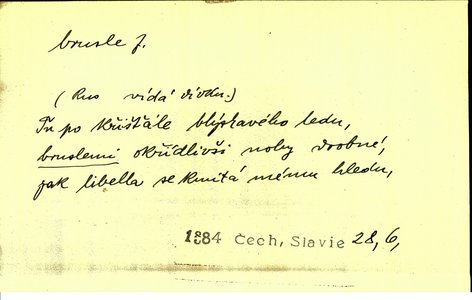 brusle f.
(Rus vídá divou.)
Tu po křišťále blýskavého ledu,
bruslemi okřídlivši nohy drobné,
jak libella se kmitá mému hledu,
1884 Čech, Slavie 28, 6,